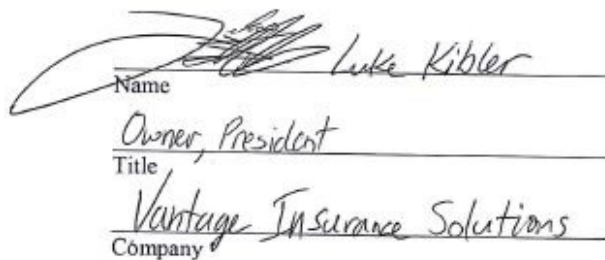 Luke Kibler
Name
Owner, President
Title
Vantage Insurance Solutions
Company